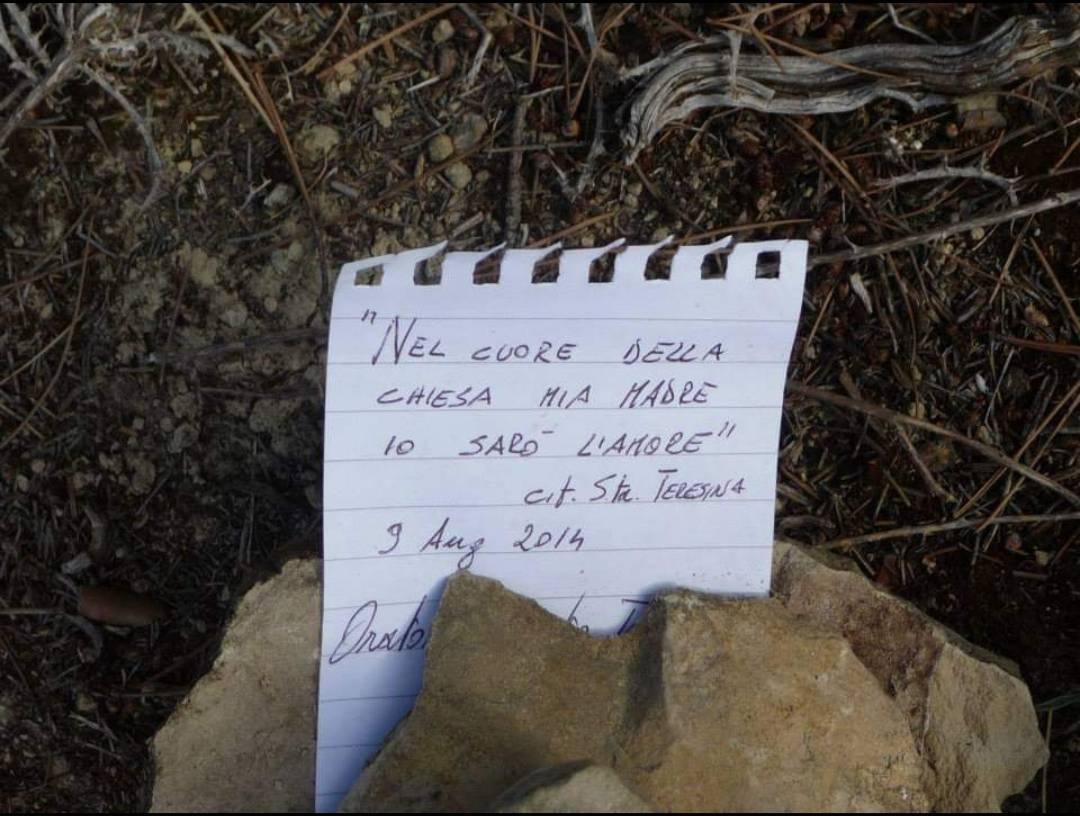 "NEL CUORE DELLA
CHIESA MIA MADRE
IO SARÒ L'AMORE"
cit. Sta. TERESINA
9 Aug 2014